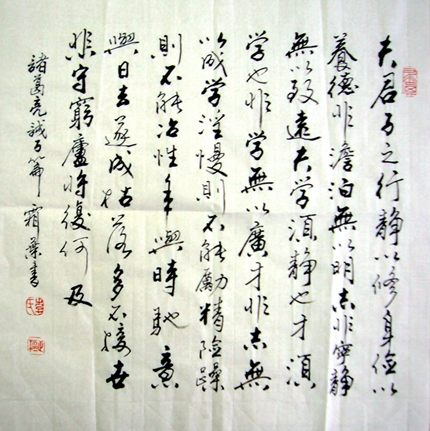 夫君子之行静以修身儉以
養德非澹泊無以明志非寧静
無以致遠夫学須静也才須
学也非学無以廣才非志無
以成学淫慢則不能勵精險躁
則不能冶性年與時馳意
與日去遂成枯落多不接世
悲守窮廬將復何及
諸葛亮誡子篇 霜葉書